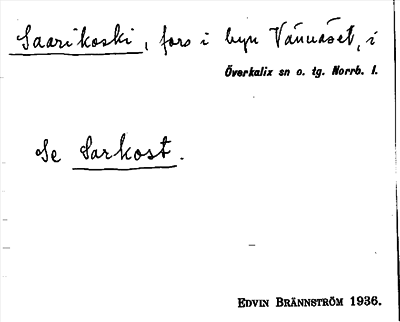 Saarikoski, fors i byn Vännäset, i
Överkalix sn o. tg. Norrb. l.
Se Sarkost.
EDVIN BRÄNNSTRÖM 1936.